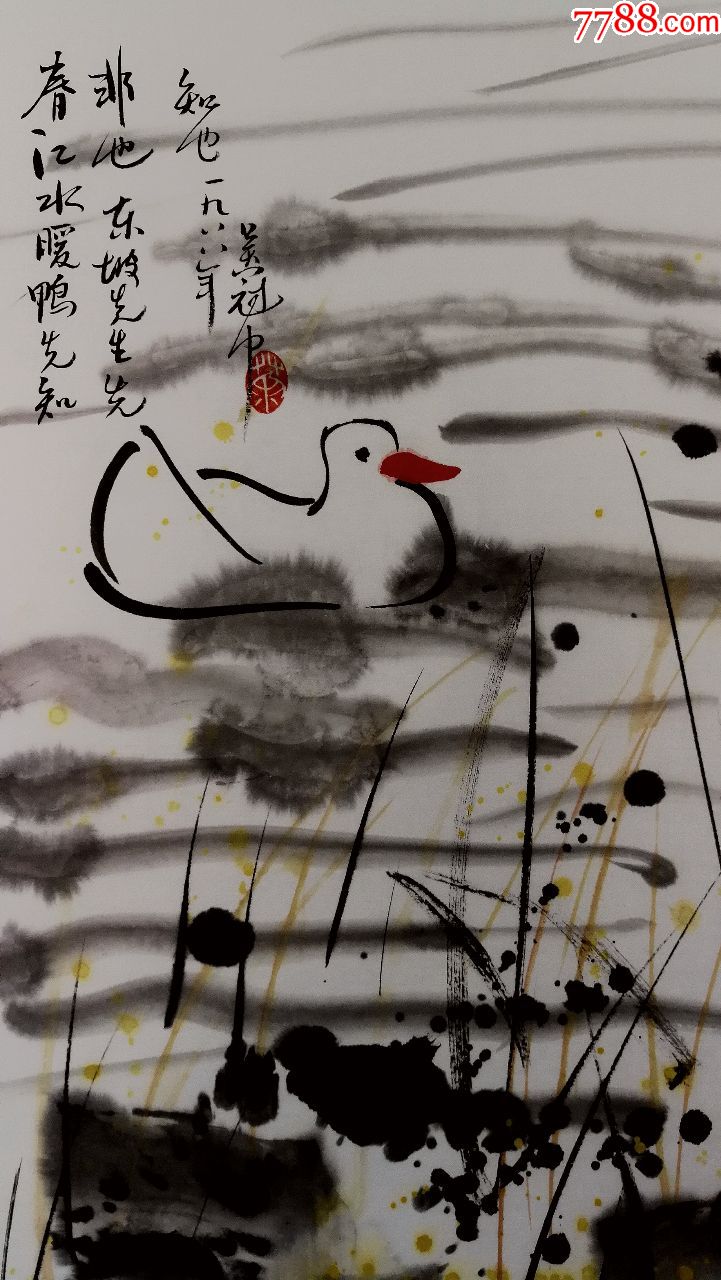 7788.com
春江水暖鴨先知
非也 东坡先生先
知也 一九八八年
吴冠中
荼